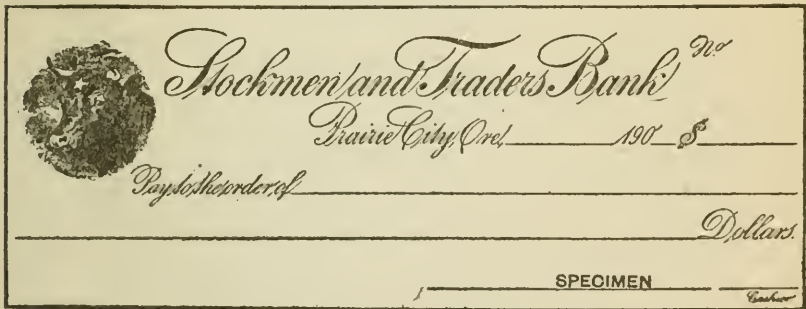 Stockmen and Traders Bank No
Prairie City, Ore, 190 $
Pay to the order of
Dollars.
SPECIMEN
Cashier